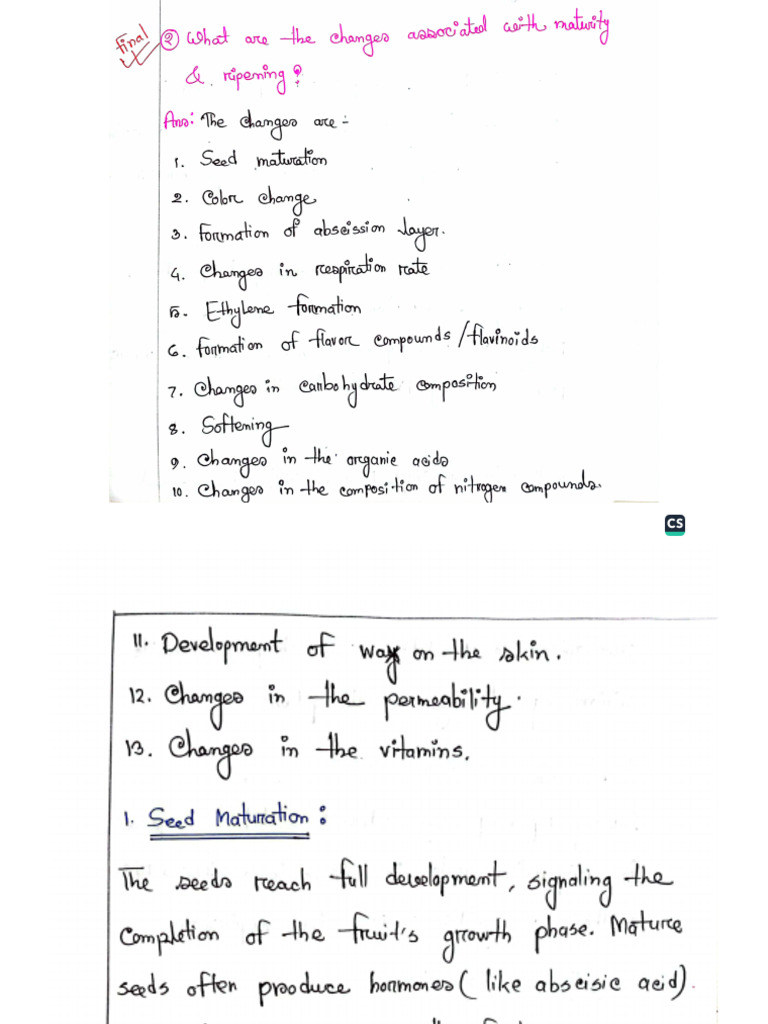 final ② What are the changes associated with maturity
& ripening?
Ans: The changes are:-
1. Seed maturation
2. Color change
3. Formation of abscission layer.
4. Changes in respiration rate
5. Ethylene formation
6. Formation of flavor compounds/flavinoids
7. Changes in carbohydrate composition
8. Softening
9. Changes in the organic acids
10. Changes in the composition of nitrogen compounds.
CS
11. Development of wax on the skin.
12. Changes in the permeability.
13. Changes in the vitamins.
1. Seed Maturation:
The seeds reach full development, signaling the
completion of the fruit's growth phase. Mature
seeds often produce hormones (like abscisic acid).